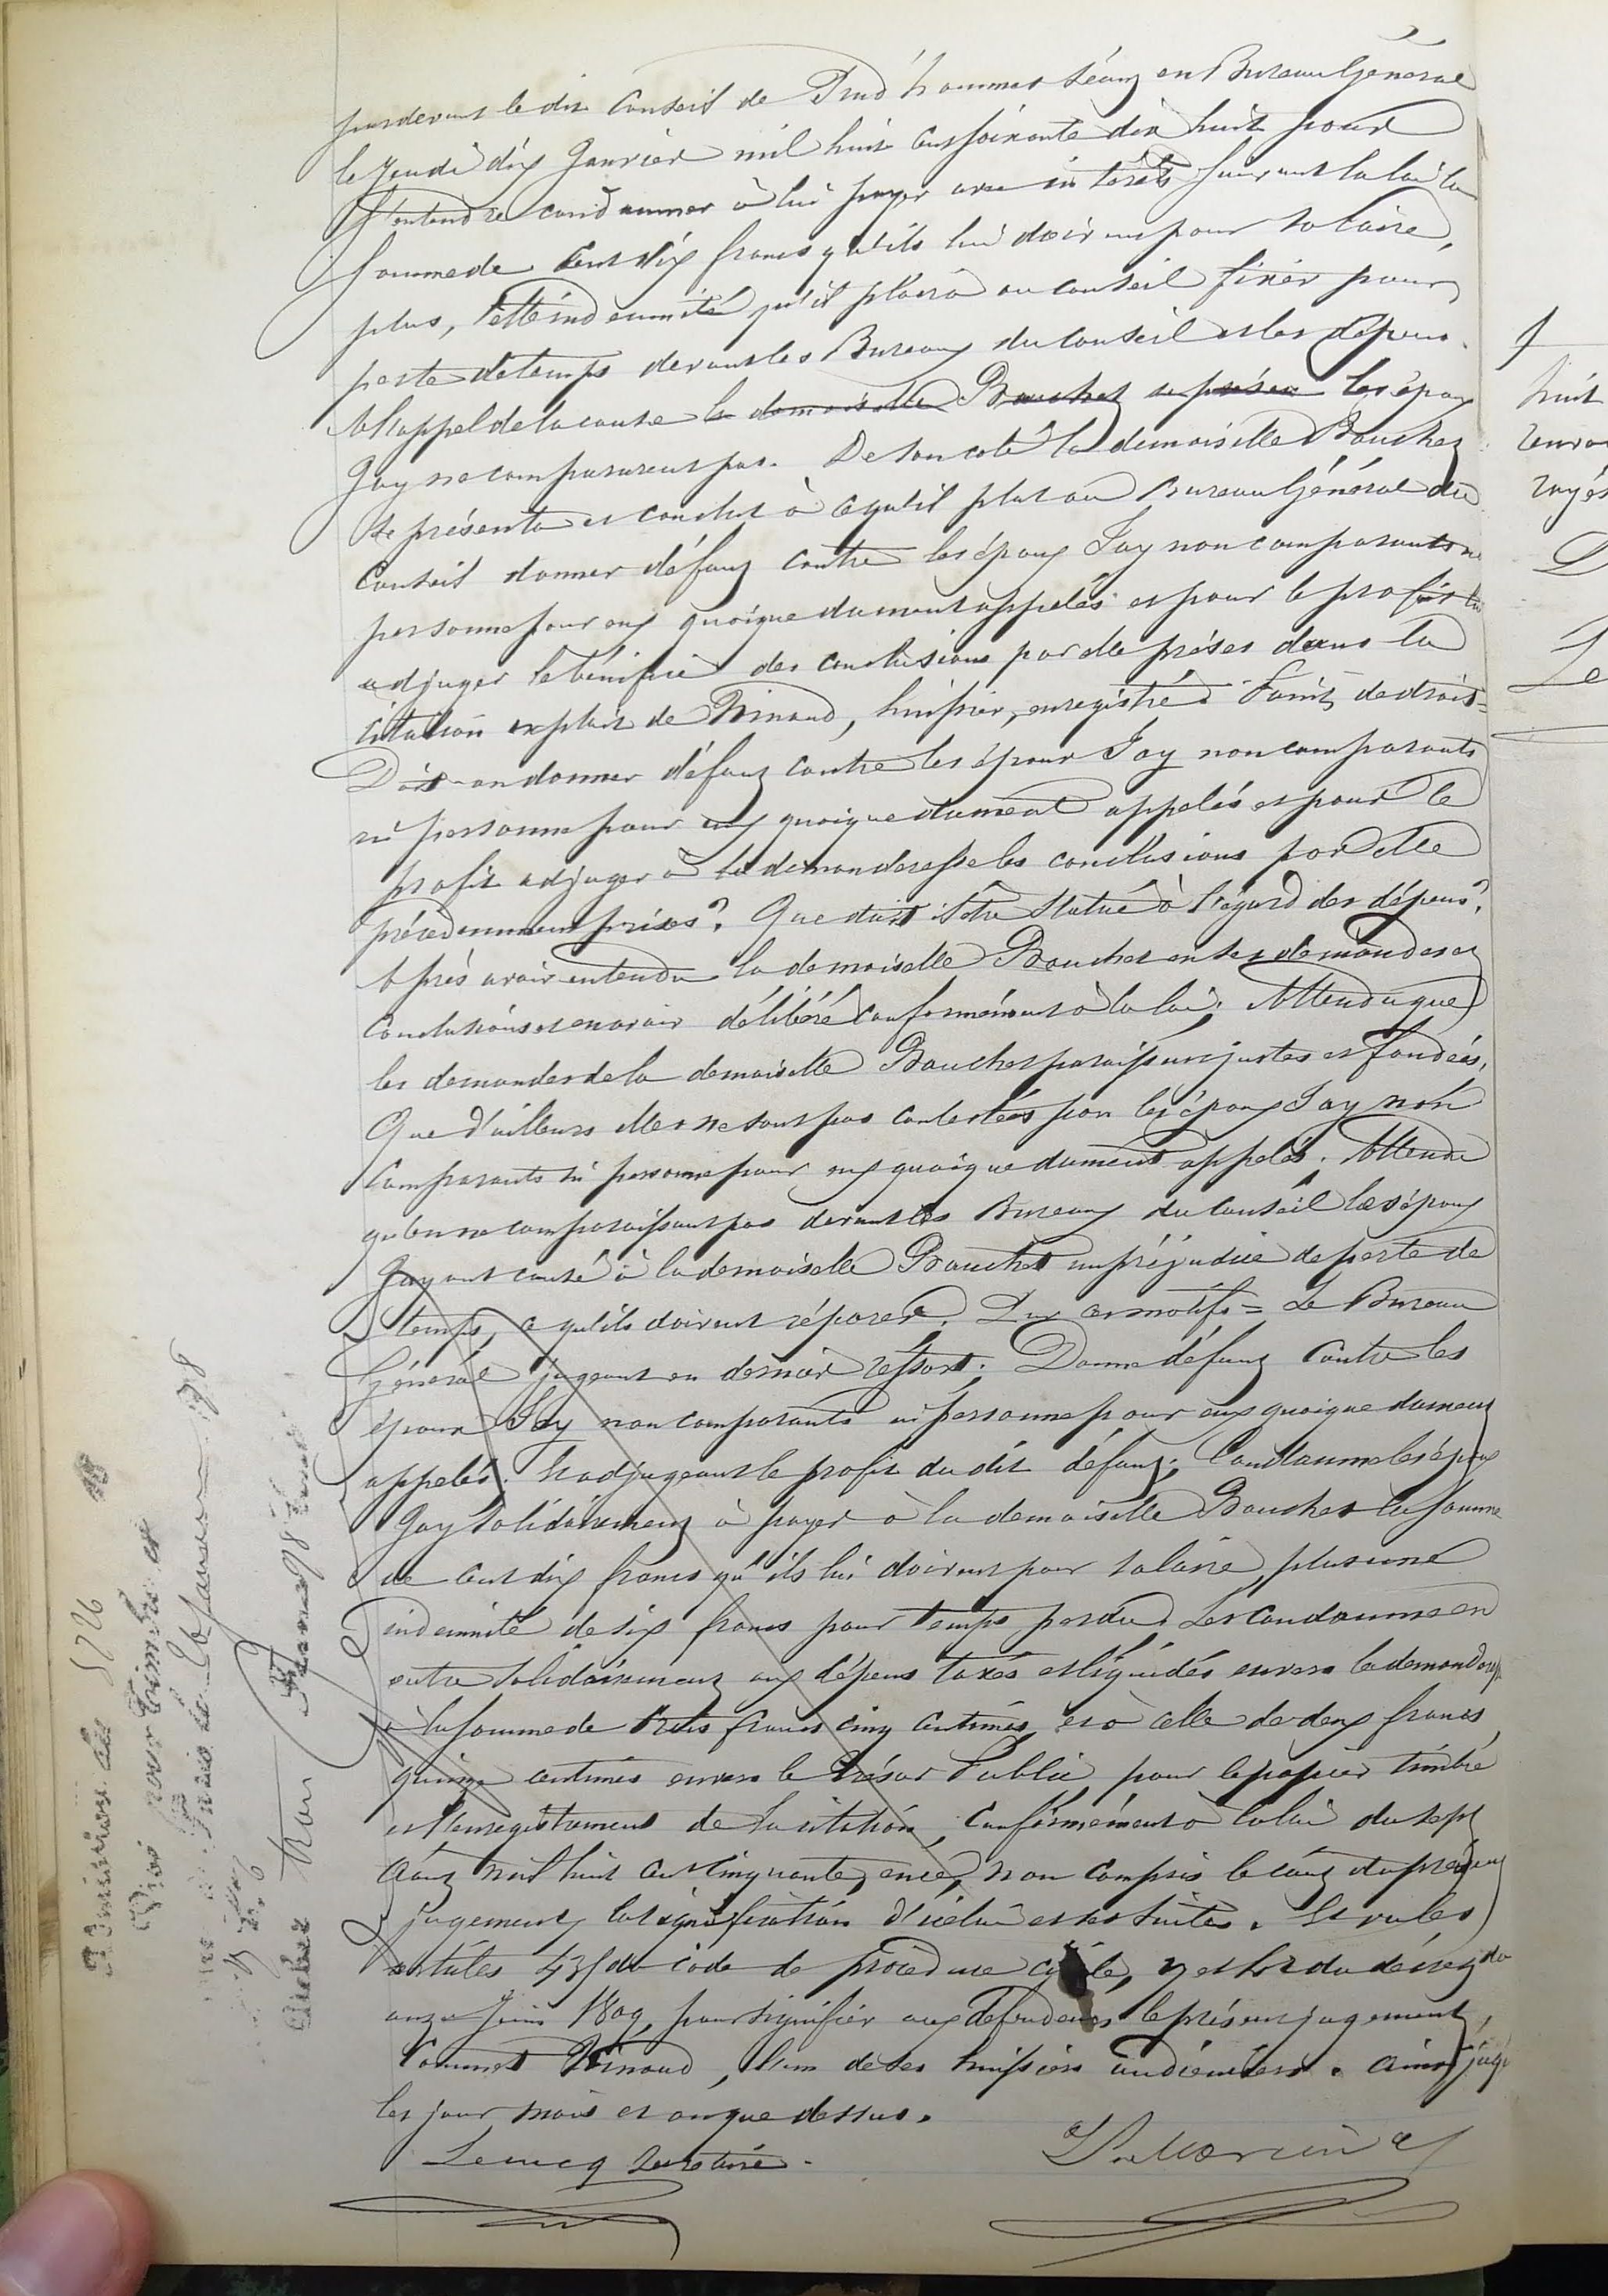 pardevant le dit Conseil de Prud'hommes séant en Bureau Général
le jeudi dix Janvier mil huit cent soixante dix huit pour
s'entendre condamner à lui payer avec intérêts suivant la loi la
somme de Cent dix francs qu'ils lui doivent pour salaire,
plus, telle indemnité qu'il plaira au Conseil fixer pour
perte de temps devant les Bureaux du Conseil et les dépens.
A l'appel de la cause la demoiselle Bouchet se présen les époux
Jay ne comparurent pas. De son coté la demoiselle Bouchet
se présenta et conclut à ce qu'il plut au Bureau Général du
Conseil donner défaut contre les époux Jay non comparants ni
personne pour eux quoique dument appelés et pour le profit lui
adjuger le bénéfice des conclusions par elle prises dans la
citation exploit de Vinaud, huissier, enregistré. Point de droit =
Doit-on donner défaut contre les époux Jay non comparants
ni personne pour eux quoique dument appelés et pour le
profit adjuger à la demanderesse les conclusions par elle
précédemment prises? Que doit il être statué à l'égard des dépens?
Après avoir entendu la demoiselle Bouchet en ses demandes et
conclusions et en avoir délibéré conformément à la loi; Attendu que
les demandes de la demoiselle Bouchet paraissent justes et fondées;
Que d'ailleurs elles ne sont pas contestées par les époux Jay non
Comparants ni personne pour eux quoique dument appelés; Attendu
qu'en ne comparaissant pas devant les Bureaux du Conseil les époux
Jay ont causé à la demoiselle Bouchet un préjudice de perte de
temps, ce qu'ils doivent réparer. Par ces motifs = Le Bureau
Général jugeant en dernier ressort; Donne défaut contre les
époux Jay non comparants ni personne pour eux quoique dument
appelés. Et adjugeant le profit du dit défaut; Condamne les époux
Jay solidairement à payer à la demoiselle Bouchet la somme
de Cent dix francs qu'ils lui doivent pour salaire, plus une
indemnité de six francs pour temps perdu. Les condamne en
outre solidairement aux dépens taxés et liquidés envers la demanderesse
à la somme de trois francs cinq centimes, et à celle de deux francs
quinze centimes envers le Trésor Public, pour le papier timbré
et l'enregistrement de la citation, Conformément à la loi du sept
Août mil huit cent cinquante, ence, non compris le coût du présent
jugement, la signification d'icelui et ses suites. Et vu les
articles 435 du code de procédure civile, 27 et 42 du décret du
onze juin 1809, pour signifier aux défendeurs le présent jugement,
Commet Vinaud, l'un de ses huissiers audienciers. Ainsi jugé
les jour mois et an que dessus.
Lecucq secrétaire.
huit
renvoi
rayés